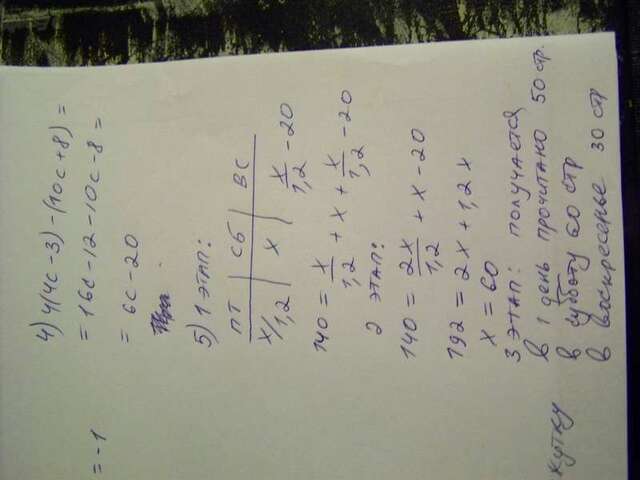 4) 4(4c-3)-(10c+8)=
=16c-12-10c-8=
= 6c-20
= -1
5) 1 ЭТАП:
ПТ | СБ | ВС
x/1,2 | x | x/1,2 -20
140 = x/1,2 + x + x/1,2 -20
2 ЭТАП:
140 = 2x/1,2 + x -20
192 = 2x + 1,2x
x = 60
3 ЭТАП: получается
в 1 день прочитано 50 стр.
в субботу 60 стр
в воскресенье 30 стр